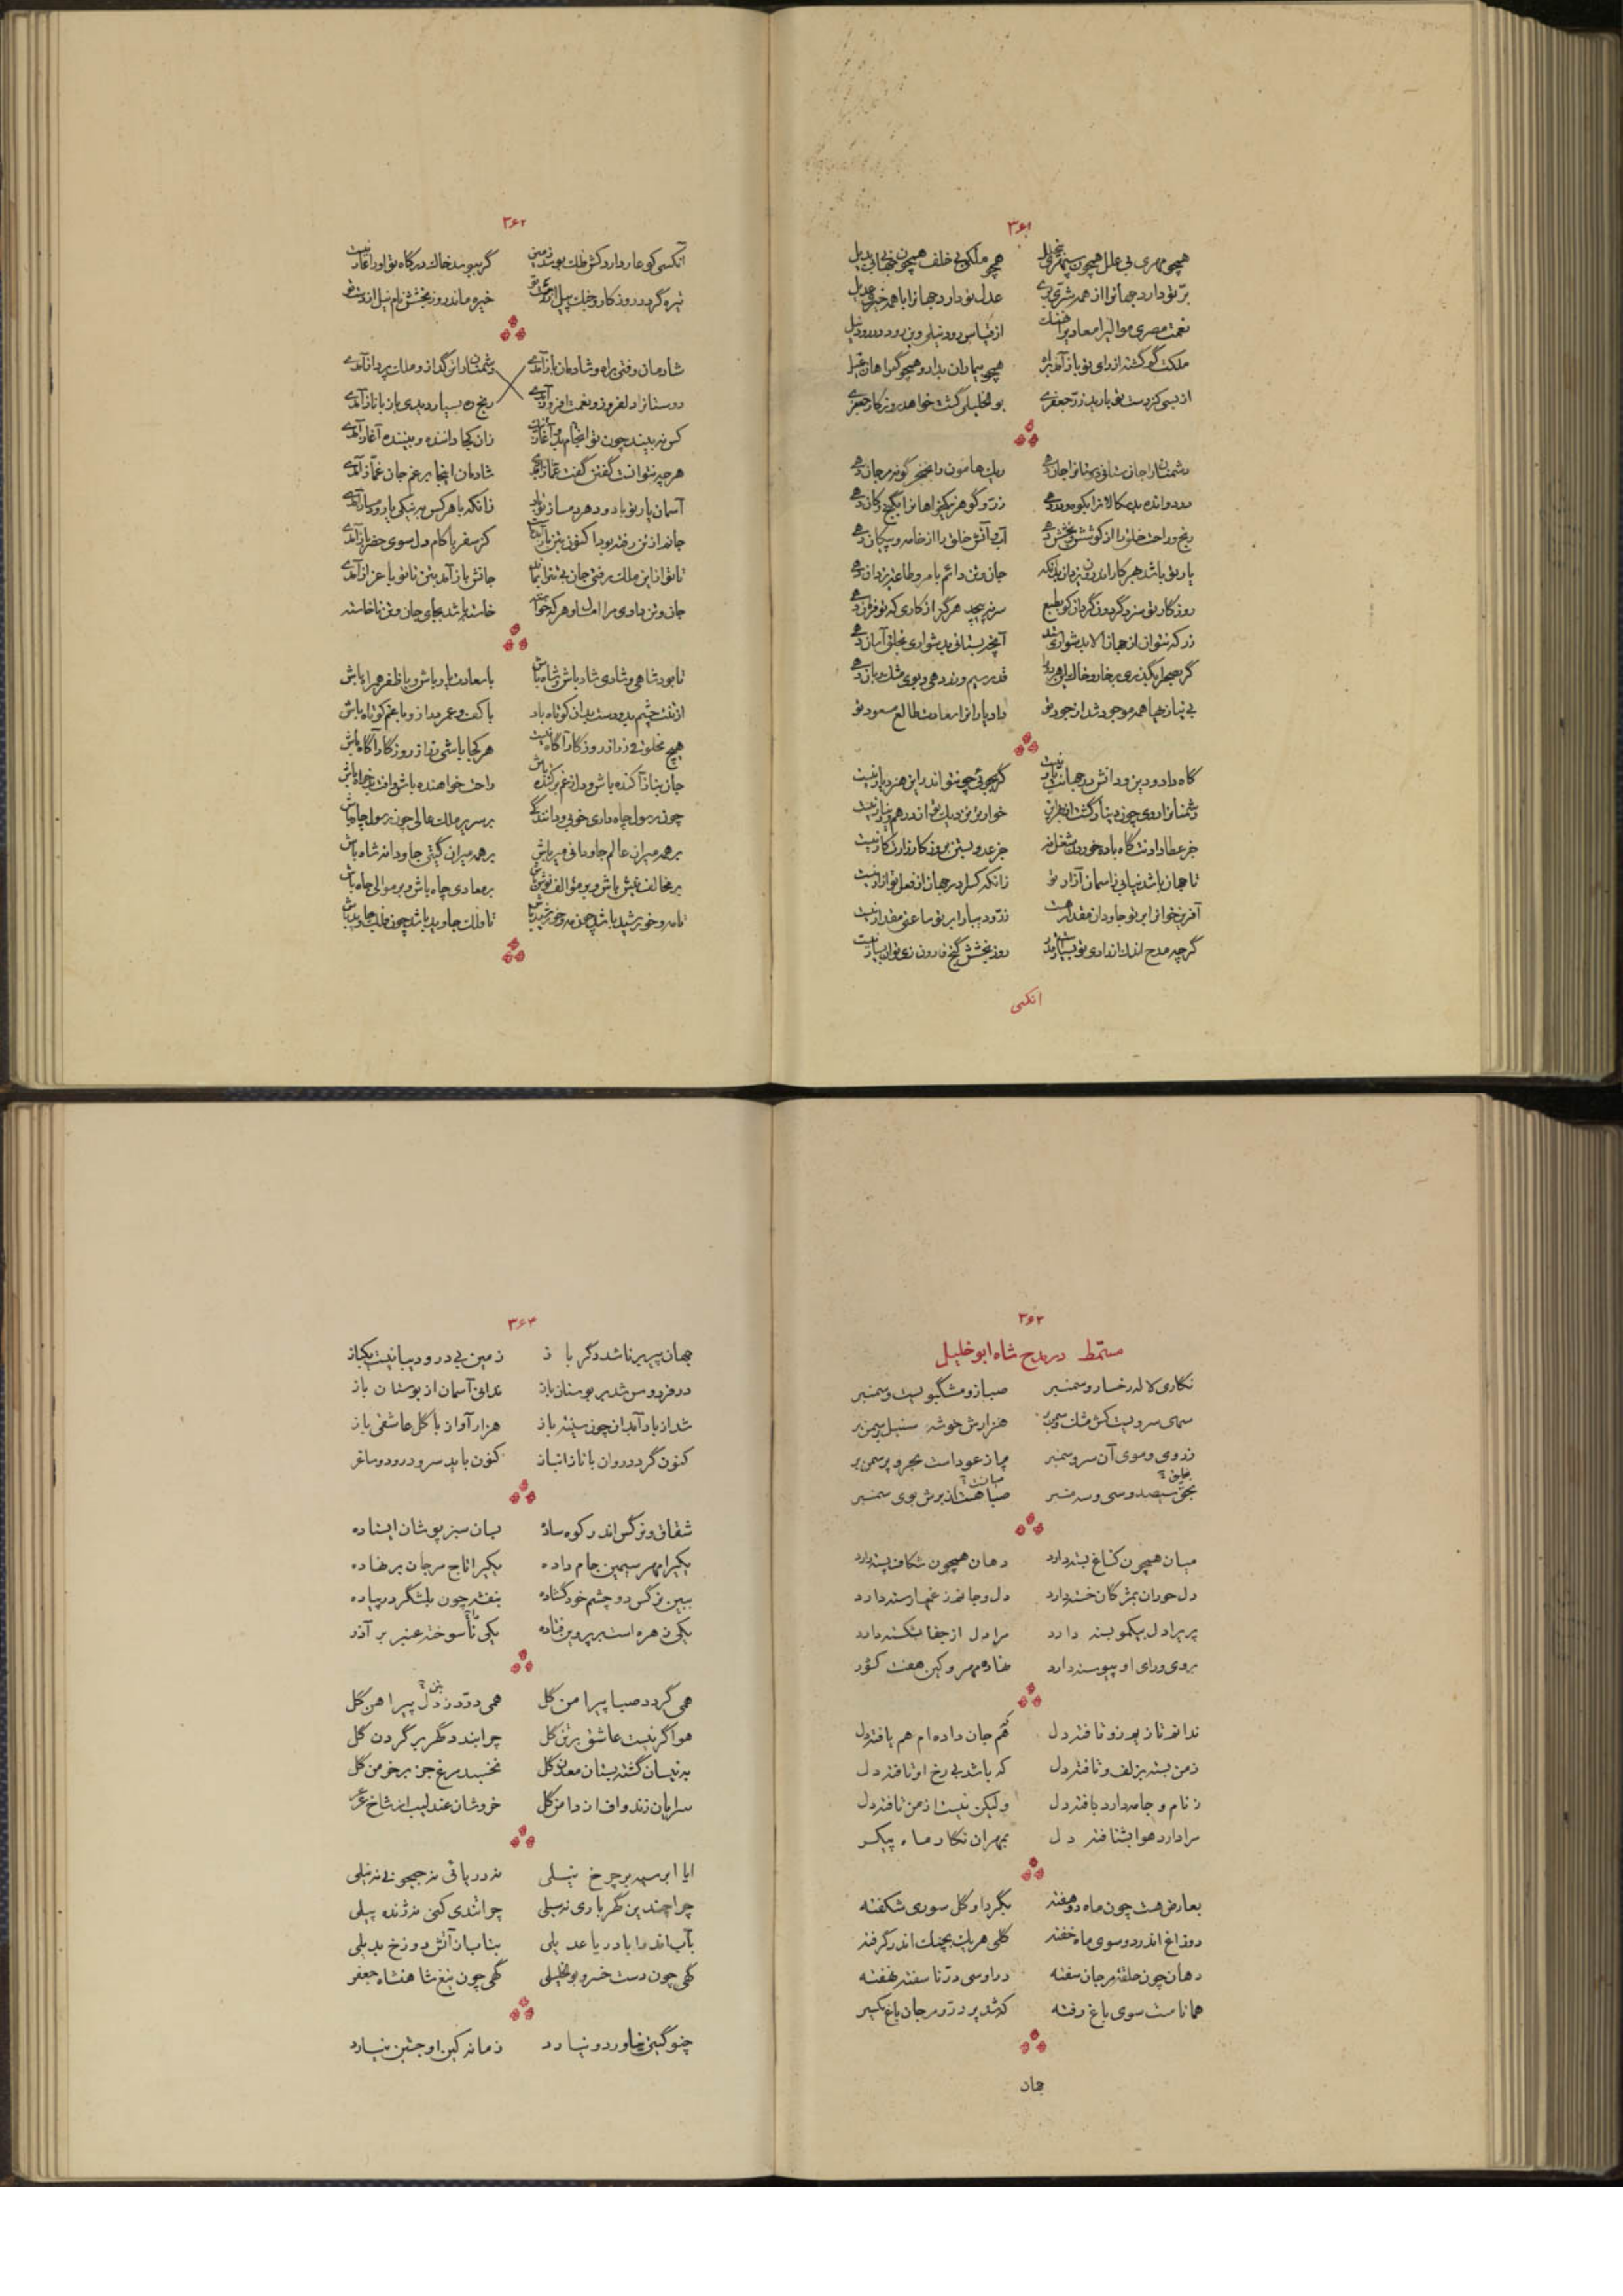 ۳۶۱
همچو مهری بی علل همچون سپهری بی خلل همچو ملکی بی خلف همچون جهانی بی بدیل
برّ تو دارد جهانرا از همه شرّی بری عدل تو دارد جهانرا با همه خیری عدیل
نعمت مصری موالیرا معادیرا
ملکت گم گشته از رای تو باز آمد براه همچو بیماران بدارو همچو گمراهان
از بسی کز دست تو بارید زرّ جعفری بوالخلیلی گشت خواهد روزکار جعفری
دشمنانرا جان ستانی دوستانرا جان دهی ریك هامون را بخنجر گونه مرجان دهی
زرّ و گوهر نیکخواهانرا بگنج و کان دهی
رنج و راحت خلق را از کوشش و بخشش دهی آب و آتش خلق را از خامه و پیکان دهی
یار تو باشد بهر کار اندرون یزدان بدانکه جان و تن دائم بامر و طاعت یزدان دهی
روزگار تو سزد گردون گردان کو بطبع سر نپیچد هرگز از کاری که تو فرمان دهی
زر که نتوان از جهان الا بدشواری آنچه بستانی بدشواری بخلق آسان دهی
گر بصحرا بگذری بر خار و خاك قدر سیم و زر دهی و بوی مشك و بان دهی
بی نیازیها همه موجود شد از جود تو داد یارانرا سعادت طالع مسعود تو
گاه داد و دین و دانش در جهانت یار نیست گر بجوئی چو تو اندر این هنر دیار نیست
دشمنانرا روی چون دینار گشت از خوارتر زین دیك تو از درهم و دینار نیست
جز عطا دادنت گاه باده خوردن شغل نه جز عدو بستن بروز کارزارت کار نیست
تا جهان باشد نیابی ز آسمان آزار تو زانکه کس را در جهان از فعل تو آزار نیست
آفرین خوانرا بر تو جاودان مقدار هست زرّ و دیبا را بر تو ساعتی مقدار نیست
گرچه مدح اندك آندر ای تو بسیار روز بخشش گنج قارون زی تو بسیار نیست
انکسی
۳۶۲
آنکسی کو عار دارد کش فلك بوسد زمین گر ببوسد خاك درگاه تو او را عار نیست
تیره گردد روز کار و جنك پیل از خیره ماند روز بخشش نام نیل از دست تو
شادمان رفتی براه و شادمان باز آمدی دشمنانرا تن گداز و ملك پرداز آمدی
دوستانرا دلفروز و نعمت افزود آمدی رنج ره بسیار دیدی باز با ناز آمدی
کس نه بیند چون تو انجام بد و آغاز زان کجا داننده و بیننده آغاز آمدی
هرچه نتوانست گفتن گفت غمّاز شادمان اینجا بر غم جان غمّاز آمدی
آسمان یار تو باد و دهر دمساز تو باد زانکه با هر کس به نیکی یار و دمساز آمدی
جانم از تن رفته بود اکنون بتن باز آمدست کز سفر با کام دل سوی حضر باز آمدی
تا تو از این ملك رفتی جان بی تن جانش باز آمد بتن تا تو با عز باز آمدی
جان و تن دادی مرا امسال و هر که خواست خاسته باشد بجای جان و تن ناخاسته
تا بود شاهی و شادی شاد باش و شاه باش با سعادت یار باش و با ظفر همراه باش
از تنت چشم بد و دست بدان کوتاه باد با کف و عمر دراز و با غم کوتاه باش
هیچ مخلوقی ز راز روزگار آگاه نیست هر کجا باشی تو از روزگار آگاه باش
جان بناز آکنده باش و دل از غم بر کنده باش راحت خواهنده باش و افت بدخواه باش
چون رسول جاه داری خوبی و مانندگی بر سریر ملك عالی چون رسول جاه باش
بر همه میران عالم جاودانی میر باش بر همه میران گیتی جاودانه شاه باش
بر مخالف نیش باش و بر مؤالف نوش باش بر معادی چاه باش و بر موالی جاه باش
تا مه و خورشید باشد چون مه و خورشید باش تا فلك جاوید باشد چون فلك جاوید باش
۳۶۳
مسمّط در مدح شاه ابو خلیل
نگاری لاله رخسار و سمنبر صبا زو مشگبویست و سمنبر
سهی سرویست کش مشك و سمن بر هزارش خوشه سنبل بر سمن بر
ز روی و موی آن سرو سمنبر چه از عود است مجمر و بر سمن بر
بحق سیصد و سی و سه منبر صبا هست از برش بوی سمنبر
میان همچون کناغ بسته دارد دهان همچون شکاف پسته دارد
دل حوران بمژگان خسته دارد دل و جانم ز غمها رسته دارد
پریرا دل بیکمو بسته دارد مرا دل از جفا بشکسته دارد
بروی و رای او پیوسته دارد نهاده مهر و کین هفت کشور
ندانم تا بدو زو تافته دل کم جان داده ام هم یافته دل
ز من بسته بزلف و تافته دل که باشد بی رخ او تافته دل
ز نام و جامه دارد بافته دل ولیکن نیست از من تافته دل
مرا دارد هوا بشتافته دل بمهر ان نگار ماه پیکر
بعارض هست چون ماه دو هفته بگرد او گل سوری شکفته
دو زاغ اندر دو سوی ماه خفته گلی هر یك بچنك اندر گرفته
دهان چون حلقه مرجان سفته در او سی درّ ناسفته نهفته
همانا مست سوی باغ رفته که شد پر درّ و مرجان باغ یکسر
جهان
۳۶۴
جهان پیر برنا شد دگر باز زمین بی در و دیبا نیست یکباز
در فردوس شد بر بوستان باز ندانی آسمان از بوستان باز
شد از باد آبدان چون سینه باز هزار آواز با گل عاشقی باز
کنون گردد روان با ناز انباز کنون باید سرود و رود و ساغر
شقاق و نرگس اندر کوه ساده بسان سبز پوشان ایستاده
یکیرا مهر سیمین جام داده یکیرا تاج مرجان بر نهاده
ببین نرگس دو چشم خود گشاده بنفشه چون بلشگر در پیاده
یکی زهره است بر پروین فتاده یکی تا سوخته عنبر بر آذر
همی گردد صبا پیرامن گل همی درّد ز دل پیراهن گل
هوا گر نیست عاشق بر تن گل چرا بندد گهر بر گردن گل
به نیسان گشته بستان معدن گل نخسبد مرغ جز بر خرمن گل
سرایان زند واف از دامن گل خروشان عندلیب از شاخ عرعر
ایا ابر سیه بر چرخ نیلی نه دریائی نه جیحونی نه نیلی
چرا چندین گهر باری نه سیلی چرا تندی کنی نه ژنده پیلی
بآب اندر با دریا عدیلی بتاب از آتش دوزخ بدیلی
گهی چون دست خسرو بو خلیلی گهی چون تیغ شاهنشاه جعفر
چنو گیتی نیاورد و نیارد زمانه کین او جستن نیارد